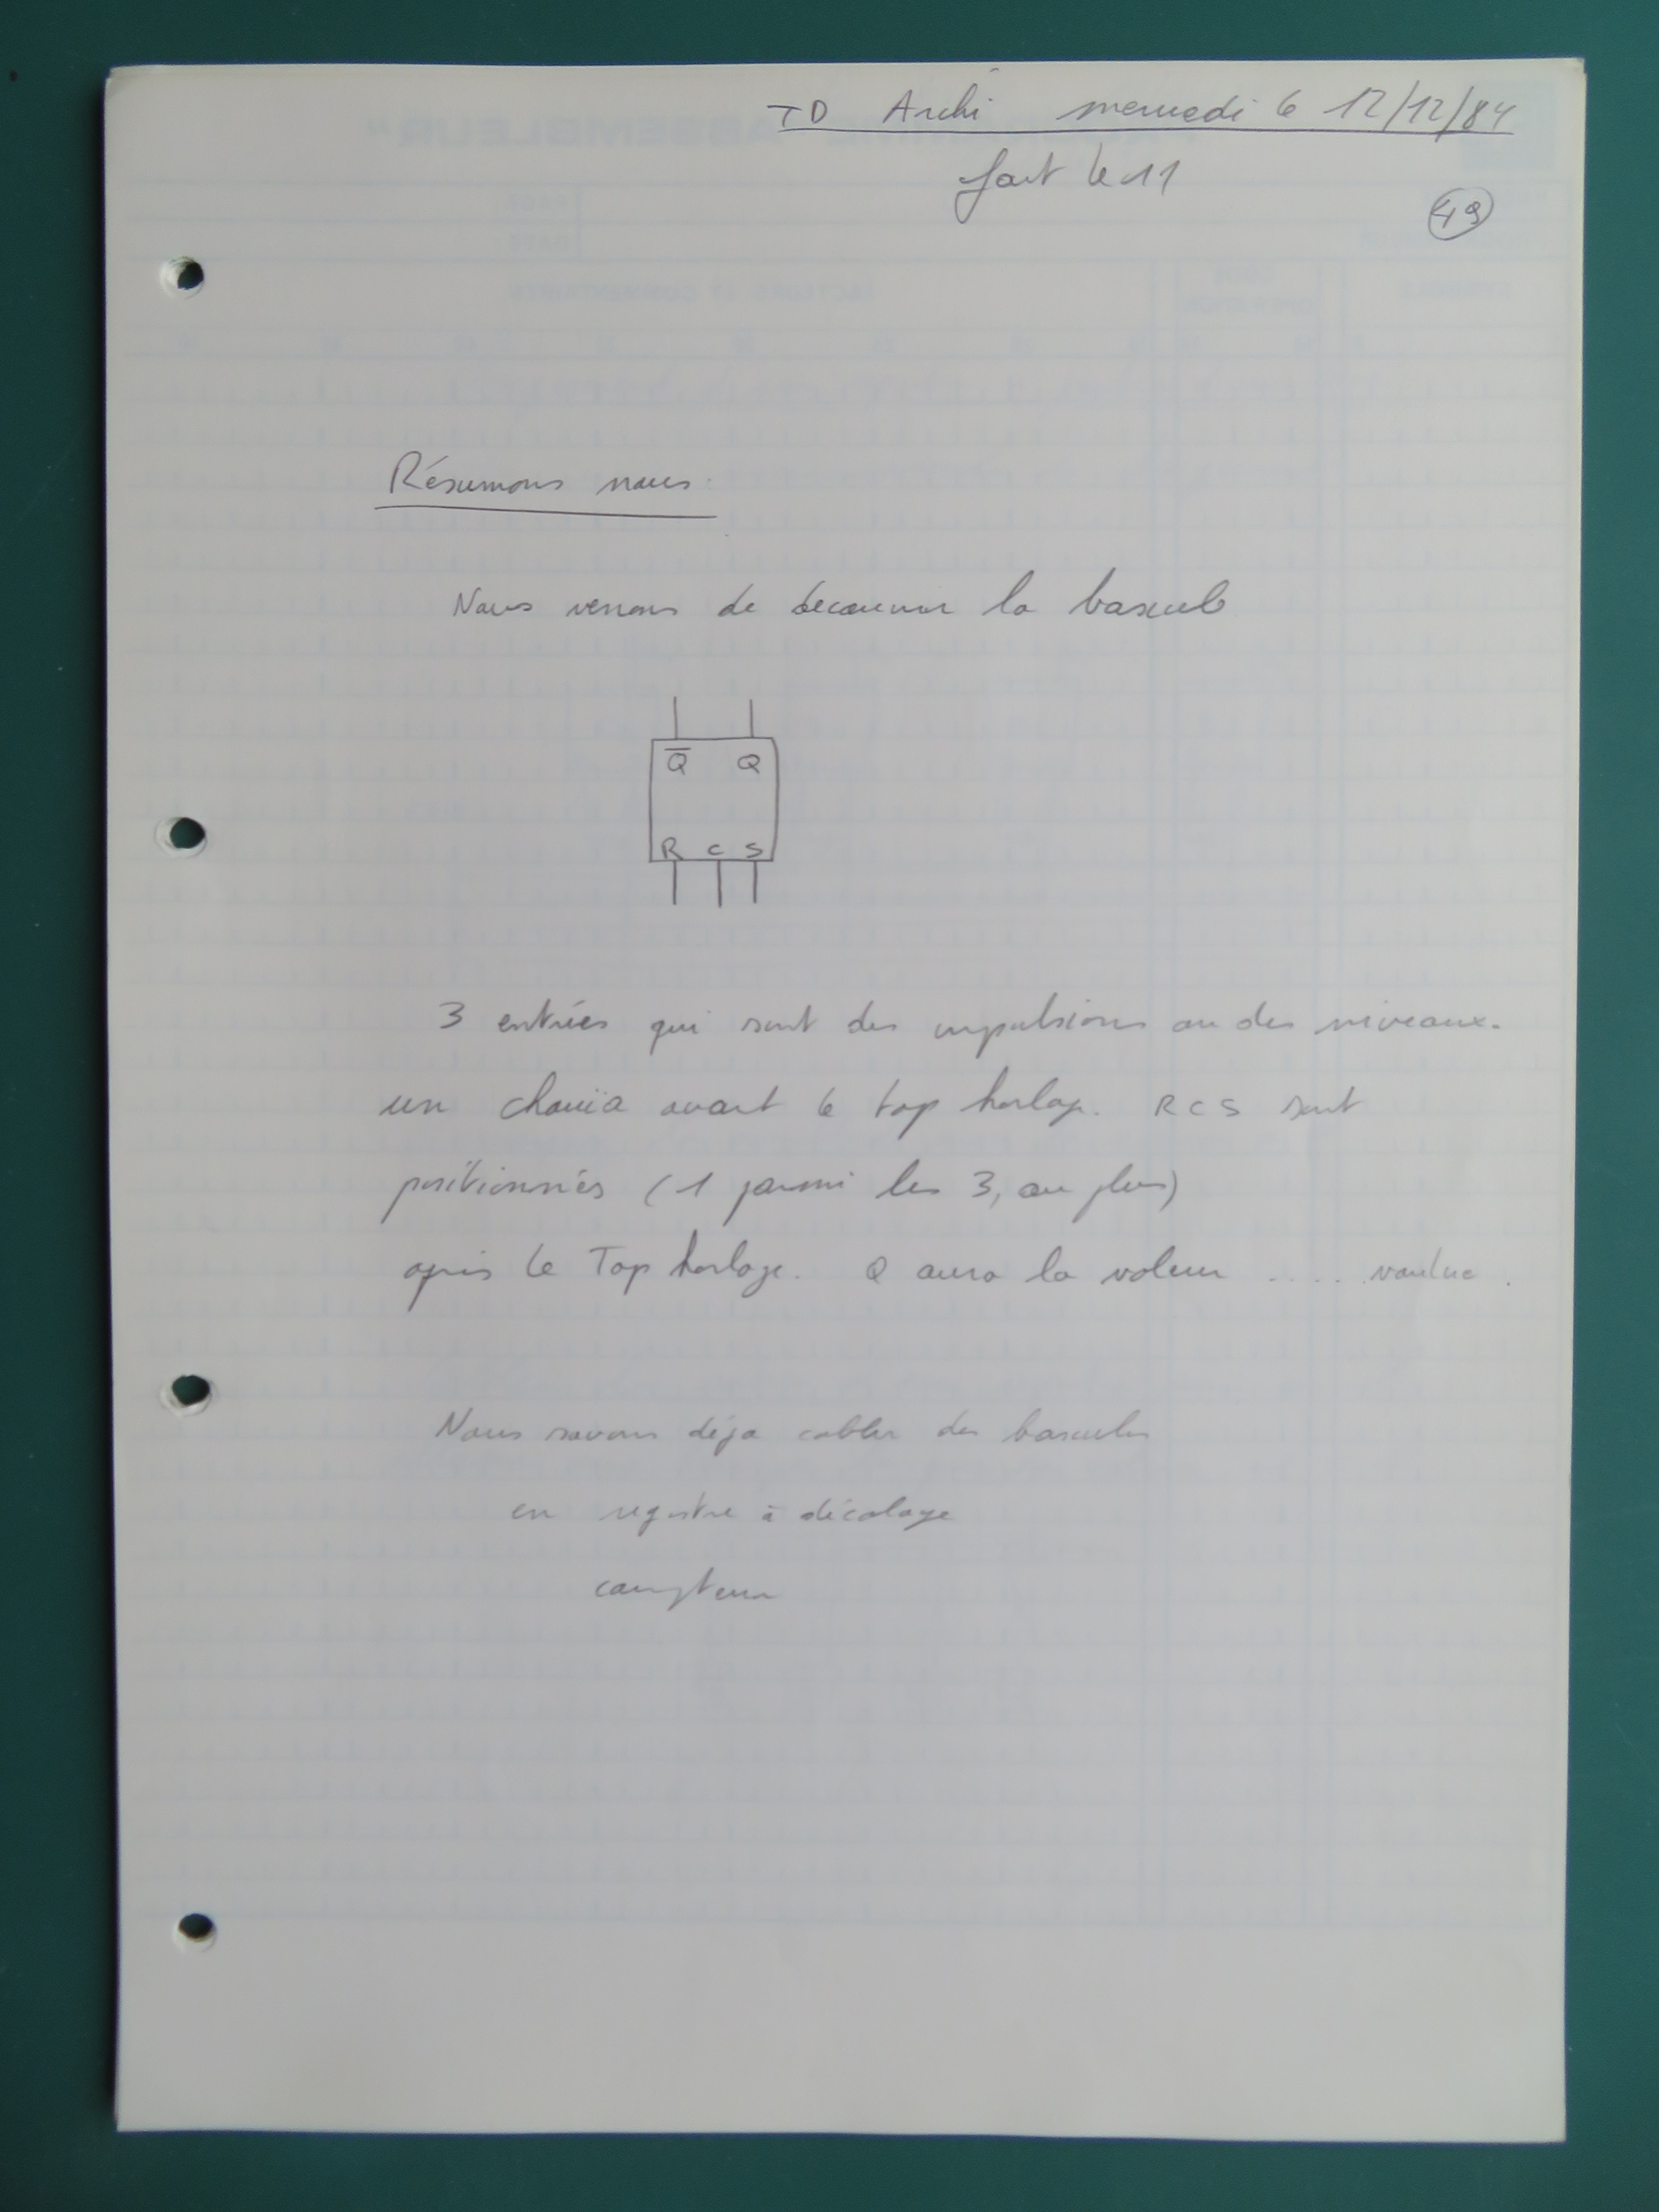 TD Archi mercredi le 12/12/84
fait le 11
49
Résumons nous.
Nous venons de decouvrir la bascule
Q̅ Q
R C S
3 entrées qui sont des impulsions ou des niveaux.
un chouïa avant le top horloge. R C S sont
positionnés (1 parmi les 3, au plus)
après le Top horloge. Q aura la valeur .... voulue.
Nous savons déja cabler des bascules
en registre à décalage
compteur